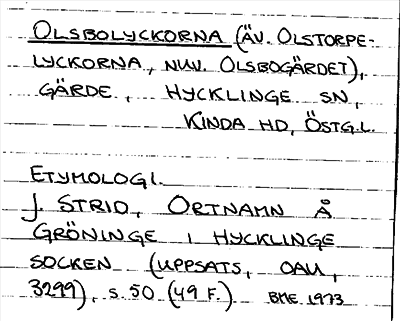 OLSBOLYCKORNA (ÄV. OLSTORPE-
LYCKORNA, NUV. OLSBOGÄRDET),
GÄRDE, HYCKLINGE SN,
KINDA HD, ÖSTG.L.
ETYMOLOGI.
J. STRID, ORTNAMN Å
GRÖNINGE I HYCKLINGE
SOCKEN (UPPSATS, OAU,
3299), S. 50 (49 F.). BME 1973